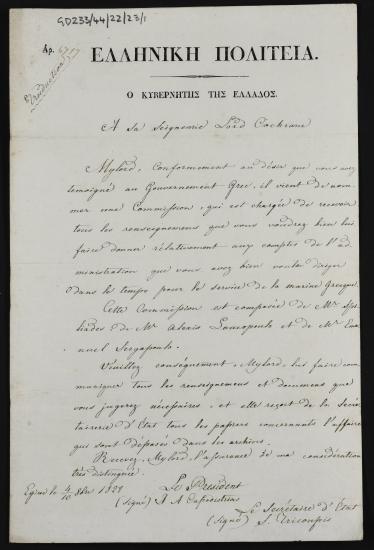 GD233/44/22/23/1
Αρ. 6717
Traduction
ΕΛΛΗΝΙΚΗ ΠΟΛΙΤΕΙΑ.
Ο ΚΥΒΕΡΝΗΤΗΣ ΤΗΣ ΕΛΛΑΔΟΣ.
A sa Seigneurie Lord Cochrane
Mylord, Conformement au désir que vous avez
temoigné au Gouvernement Grec, il vient de nom-
mer une Commission, qui est chargée de recevoir
tous les renseignemens que vous voudrez bien lui
faire donner rélativement aux comptes de l'ad-
ministration que vous avez bien voulu diriger
dans le temps pour le service de la marine Grecque.
Cette Commission est composée de Mr
de Mr Alexis et de Mr Ema
nuel
Veuillez conséquemment, Mylord, lui faire com
muniquer tous les renseignemens et documens que
vous jugerez nécessaires, et elle reçoit de la Secré
tairerie d'Etat tous les papiers concernants l'affaire
qui sont déposés dans les archives.
Recevez, Mylord, l'assurance de ma considération
très distinguée.
Egine le 4/16 1828
Le President
(signé) J A Capodistrias
Le Secrétaire d'Etat
(signé) S. Tricoupis